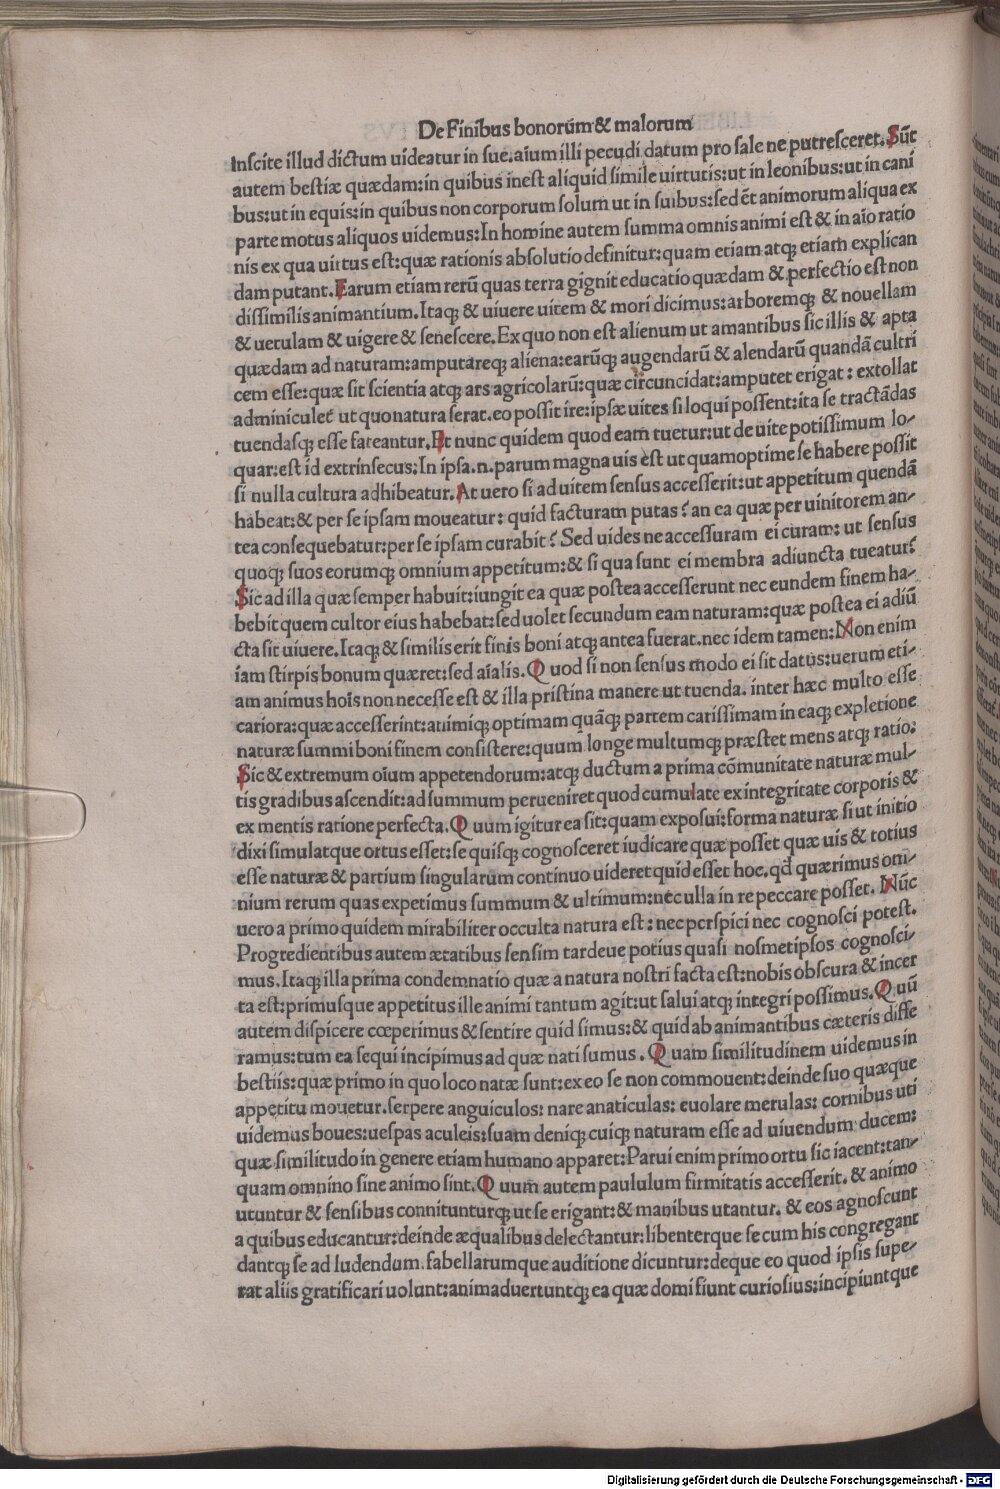 De Finibus bonorūm & malorum
Inscite illud dictum uideatur in sue.aīum illi pecudi datum pro sale ne putresceret.Sūt
autem bestiæ quædam:in quibus inest aliquid simile uirtutis:ut in leonibus:ut in cani
bus:ut in equis:in quibus non corporum solum ut in suibus:sed ēt animorum aliqua ex
parte motus aliquos uidemus:In homine autem summa omnis animi est & in aīo ratio
nis ex qua uirtus est:quæ rationis absolutio definitur:quam etiam atq; etiam explican
dam putant.Earum etiam rerū quas terra gignit educatio quædam & perfectio est non
dissimilis animantium.Itaq; & uiuere uitem & mori dicimus:arboremq; & nouellam
& uetulam & uigere & senescere.Ex quo non est alienum ut amantibus sic illis & apta
quædam ad naturam:amputareq; aliena:earūq; augendarū & alendarū quandā cultri
cem esse:quæ sit scientia atq; ars agricolarū:quæ circuncidat:amputet erigat : extollat
adminiculet ut quo natura ferat.eo possit ire:ipsæ uites si loqui possent:ita se tractādas
tuendasq; esse fateantur.Et nunc quidem quod eam tuetur:ut de uite potissimum lo-
quar:est id extrinsecus:In ipsa.n.parum magna uis est ut quamoptime se habere possit
si nulla cultura adhibeatur.At uero si ad uitem sensus accesserit:ut appetitum quendā
habeat:& per se ipsam moueatur: quid facturam putas? an ea quæ per uinitorem an-
tea consequebatur:per se ipsam curabit? Sed uides ne accessuram ei curam: ut sensus
quoq; suos eorumq; omnium appetitum:& si qua sunt ei membra adiuncta tueatur?
Sic ad illa quæ semper habuit:iungit ea quæ postea accesserunt nec eundem finem ha-
bebit quem cultor eius habebat:sed uolet secundum eam naturam:quæ postea ei adiū
cta sit uiuere.Itaq; & similis erit finis boni atq; antea fuerat.nec idem tamen:Non enim
iam stirpis bonum quæret:sed aīalis.Quod si non sensus modo ei sit datus:uerum eti-
am animus hoīs non necesse est & illa pristina manere ut tuenda. inter hæc multo esse
cariora:quæ accesserint:animiq; optimam quāq; partem carissimam in eaq; expletione
naturæ summi boni finem consistere:quum longe multumq; præstet mens atq; ratio:
Sic & extremum oīum appetendorum:atq; ductum a prima cōmunitate naturæ mul-
tis gradibus ascendit:ad summum perueniret quod cumulate ex integritate corporis &
ex mentis ratione perfecta.Quum igitur ea sit:quam exposui:forma naturæ si ut initio
dixi simulatque ortus esset:se quisq; cognosceret iudicare quæ posset quæ uis & totius
esse naturæ & partium singularum continuo uideret quid esset hoc.qd quærimus om-
nium rerum quas expetimus summum & ultimum:nec ulla in re peccare posset. Nūc
uero a primo quidem mirabiliter occulta natura est: nec perspici nec cognosci potest.
Progredientibus autem ætatibus sensim tardeue potius quasi nosmetipsos cognosci-
mus.Itaq; illa prima condemnatio quæ a natura nostri facta est:nobis obscura & incer
ta est:primusque appetitus ille animi tantum agit:ut salui atq; integri possimus.Quū
autem dispicere cœperimus & sentire quid simus:& quid ab animantibus cæteris diffe
ramus:tum ea sequi incipimus ad quæ nati sumus.Quam similitudinem uidemus in
bestiis:quæ primo in quo loco natæ sunt:ex eo se non commouent:deinde suo quæque
appetitu mouetur.serpere anguiculos: nare anaticulas: euolare merulas: cornibus uti
uidemus boues:uespas aculeis:suam deniq; cuiq; naturam esse ad uiuendum ducem:
quæ similitudo in genere etiam humano apparet:Parui enim primo ortu sic iacent:tan-
quam omnino sine animo sint.Quum autem paululum firmitatis accesserit. & animo
utuntur & sensibus connitunturq; ut se erigant:& manibus utantur. & eos agnoscunt
a quibus educantur:deinde æqualibus delectantur:libenterque se cum his congregant
dantq; se ad ludendum.fabellarumque auditione dicuntur:deque eo quod ipsis supe-
rat aliis gratificari uolunt:animaduertuntq; ea quæ domi fiunt curiosius:incipiuntque
Digitalisierung gefördert durch die Deutsche Forschungsgemeinschaft - DFG